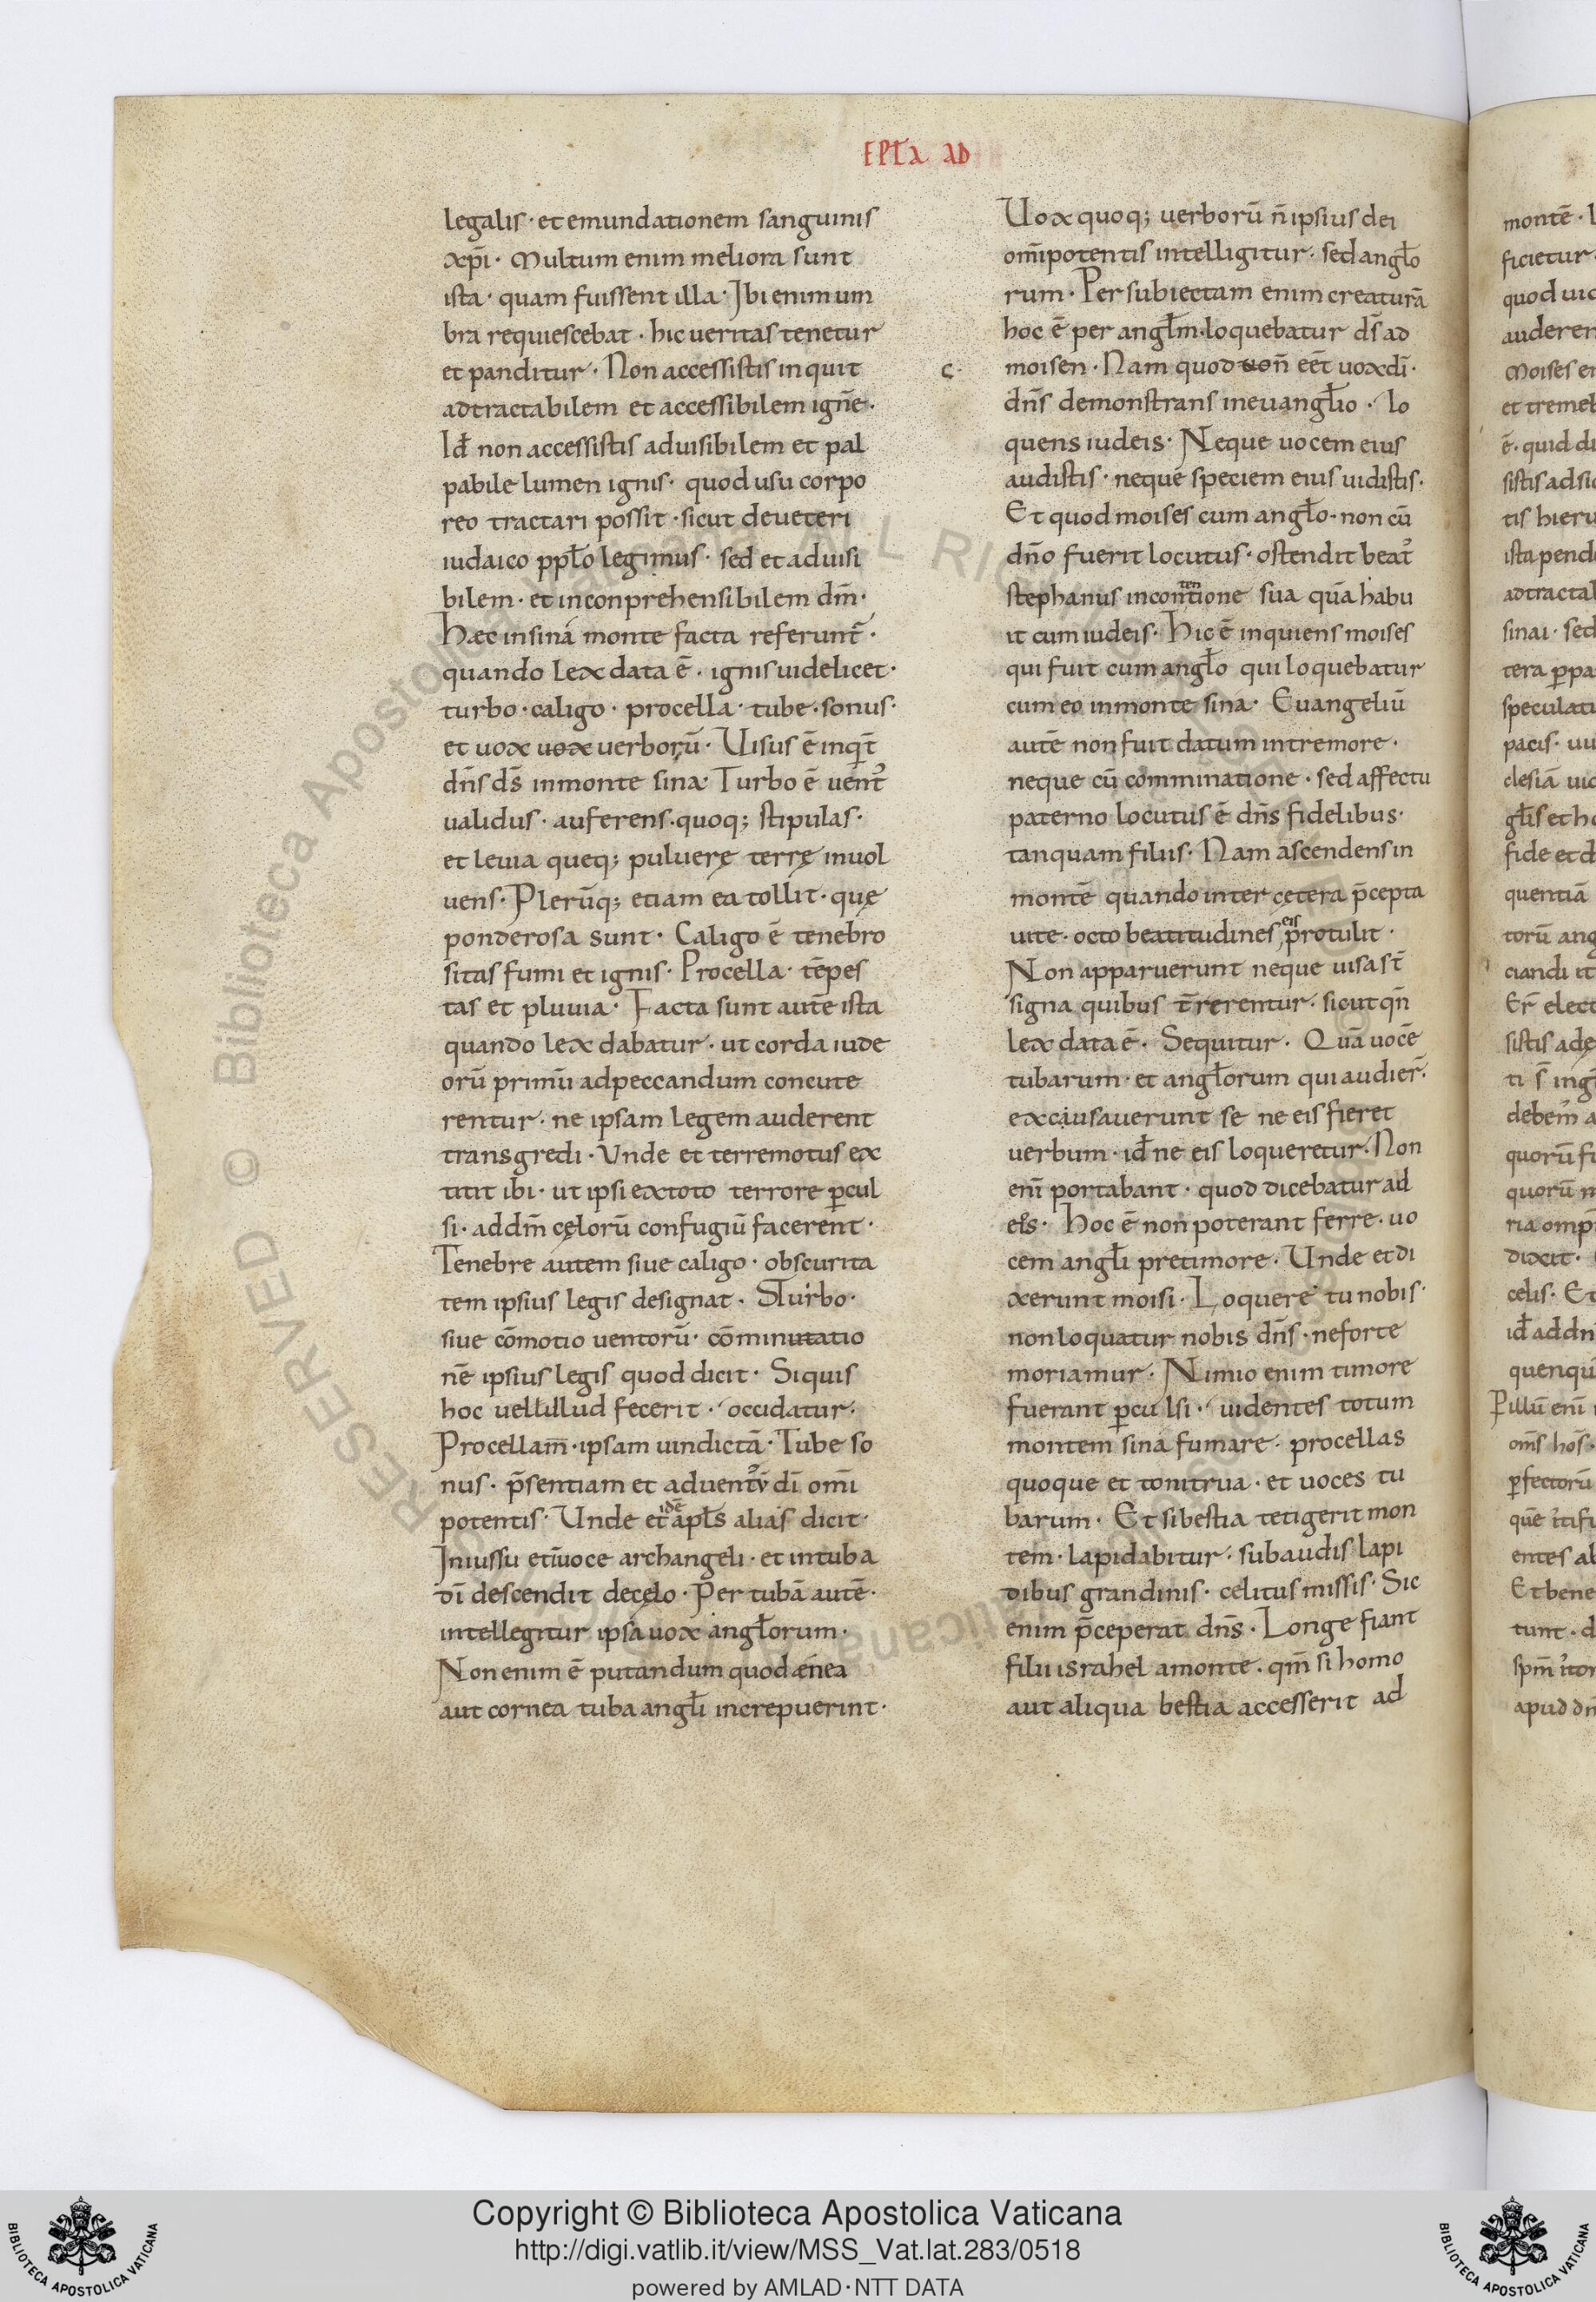 EPLa AD
legalis · et emundationem sanguinis
xp̄i · Multum enim meliora sunt
ista · quam fuissent illa · Ibi enim um
bra requiescebat · hic ueritas tenetur
et panditur · Non accessistis inquit
adtractabilem et accessibilem igne̅ ·
Id̅ non accessistis aduisibilem et pal
pabile lumen ignis · quod usu corpo
reo tractari possit · sicut deueteri
iudaico pp̅lo legimus · sed et aduisi
bilem · et inconprehensibilem dm̅ ·
Hæc insina monte facta referunt̅ ·
quando lex data e̅ · ignis uidelicet ·
turbo · caligo · procella · tube · sonus ·
et uox uox uerboru̅ · Uisus e̅ inqi̅t
dn̅s ds̅ inmonte sina · Turbo e̅ uent᾿
ualidus · auferens quoq; stipulas ·
et leuia queq; puluerę terrę inuol
uens · Pleru̅q; etiam ea tollit · quę
ponderosa sunt · Caligo e̅ tenebro
sitas fumi et ignis · Procella · te̅pes
tas et pluuia · Facta sunt aute̅ ista
quando lex dabatur · ut corda iude
oru̅ primu̅ adpeccandum concute
rentur · ne ipsam legem auderent
transgredi · Unde et terremotus ex
titit ibi · ut ipsi extoto terrore ꝑcul
si · addm̅ cęloru̅ confugiu̅ facerent ·
Tenebre autem siue caligo · obscurita
tem ipsius legis designat · STurbo ·
siue co̅motio uentoru̅ · co̅minutatio
ne̅ ipsius legis quod dicit · Siquis
hoc uel illud fecerit · occidatur ·
Procellam̅ · ipsam uindicta̅ · Tube so
nus · p̅sentiam et aduentu̅ di̅ omi̅
potentis · Unde et ide̅ apl̅s alias dicit ·
Iniussu etinuoce archangeli · et intuba
di̅ descendit decęlo · Per tuba̅ aute̅ ·
intellegitur ipsa uox angl̅orum ·
Non enim e̅ putandum quod ænea
aut cornea tuba angl̅i increpuerint ·
Uox quoq; uerboru̅ n̅ ipsius dei
omi̅potentis intelligitur · sed angl̅o
rum · Per subiectam enim creatura̅
hoc e̅ per angl̅m · loquebatur ds̅ ad
c· moisen · Nam quod non̅ ee̅t uox di̅ ·
dn̅s demonstrans ineuangl̅io · lo
quens iudeis · Neque uocem eius
audistis · neque speciem eius uidistis ·
Et quod moises cum angl̅o · non cu̅
dn̅o fuerit locutus · ostendit beat᾿
stephanus incontentione sua qua̅ habu
it cum iudeis · Hic e̅ inquiens moises
qui fuit cum angl̅o qui loquebatur
cum eo inmonte sina · Euangeliu̅
aute̅ non fuit datum intremore ·
neque cu̅ comminatione · sed affectu
paterno locutus e̅ dn̅s fidelibus ·
tanquam filiis · Nam ascendens in
monte̅ quando inter cętera p̅cepta
uite · octo beatitudines eis protulit ·
Non apparuerunt neque uisa st̅
signa quibus t̅rerentur · sicut qn̅
lex data e̅ · Sequitur · Qua̅ uoce̅
tubarum · et angl̅orum qui audier̅ ·
excusauerunt se ne eis fieret
uerbum · id̅ ne eis loqueretur · Non
eni̅ portabant · quod dicebatur ad
eis · Hoc e̅ non poterant ferre · uo
cem angl̅i pretimore · Unde et di
xerunt moisi · Loquere tu nobis ·
non loquatur nobis dn̅s · neforte
moriamur · Nimio enim timore
fuerant ꝑculsi · uidentes totum
montem sina fumare · procellas
quoque et tonitrua · et uoces tu
barum · Et si bestia tetigerit mon
tem · lapidabitur · subaudis lapi
dibus grandinis · celitus missis · Sic
enim p̅ceperat dn̅s · Longe fiant
filii israhel amonte · qm̅ si homo
aut aliqua bestia accesserit ad
Copyright © Biblioteca Apostolica Vaticana
http://digi.vatlib.it/view/MSS_Vat.lat.283/0518
powered by AMLAD·NTT DATA